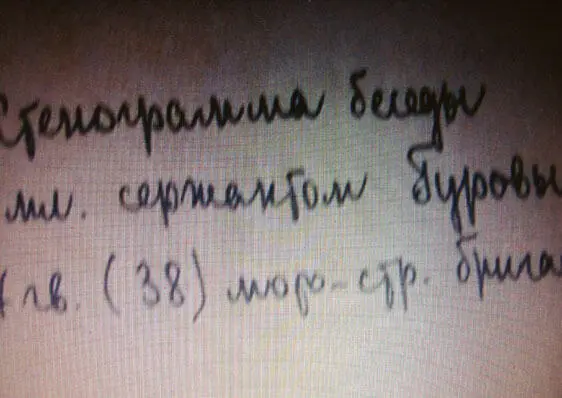 Стенограмма беседы
мл. сержантом Буровы
гв. (38) моро-стр. брига